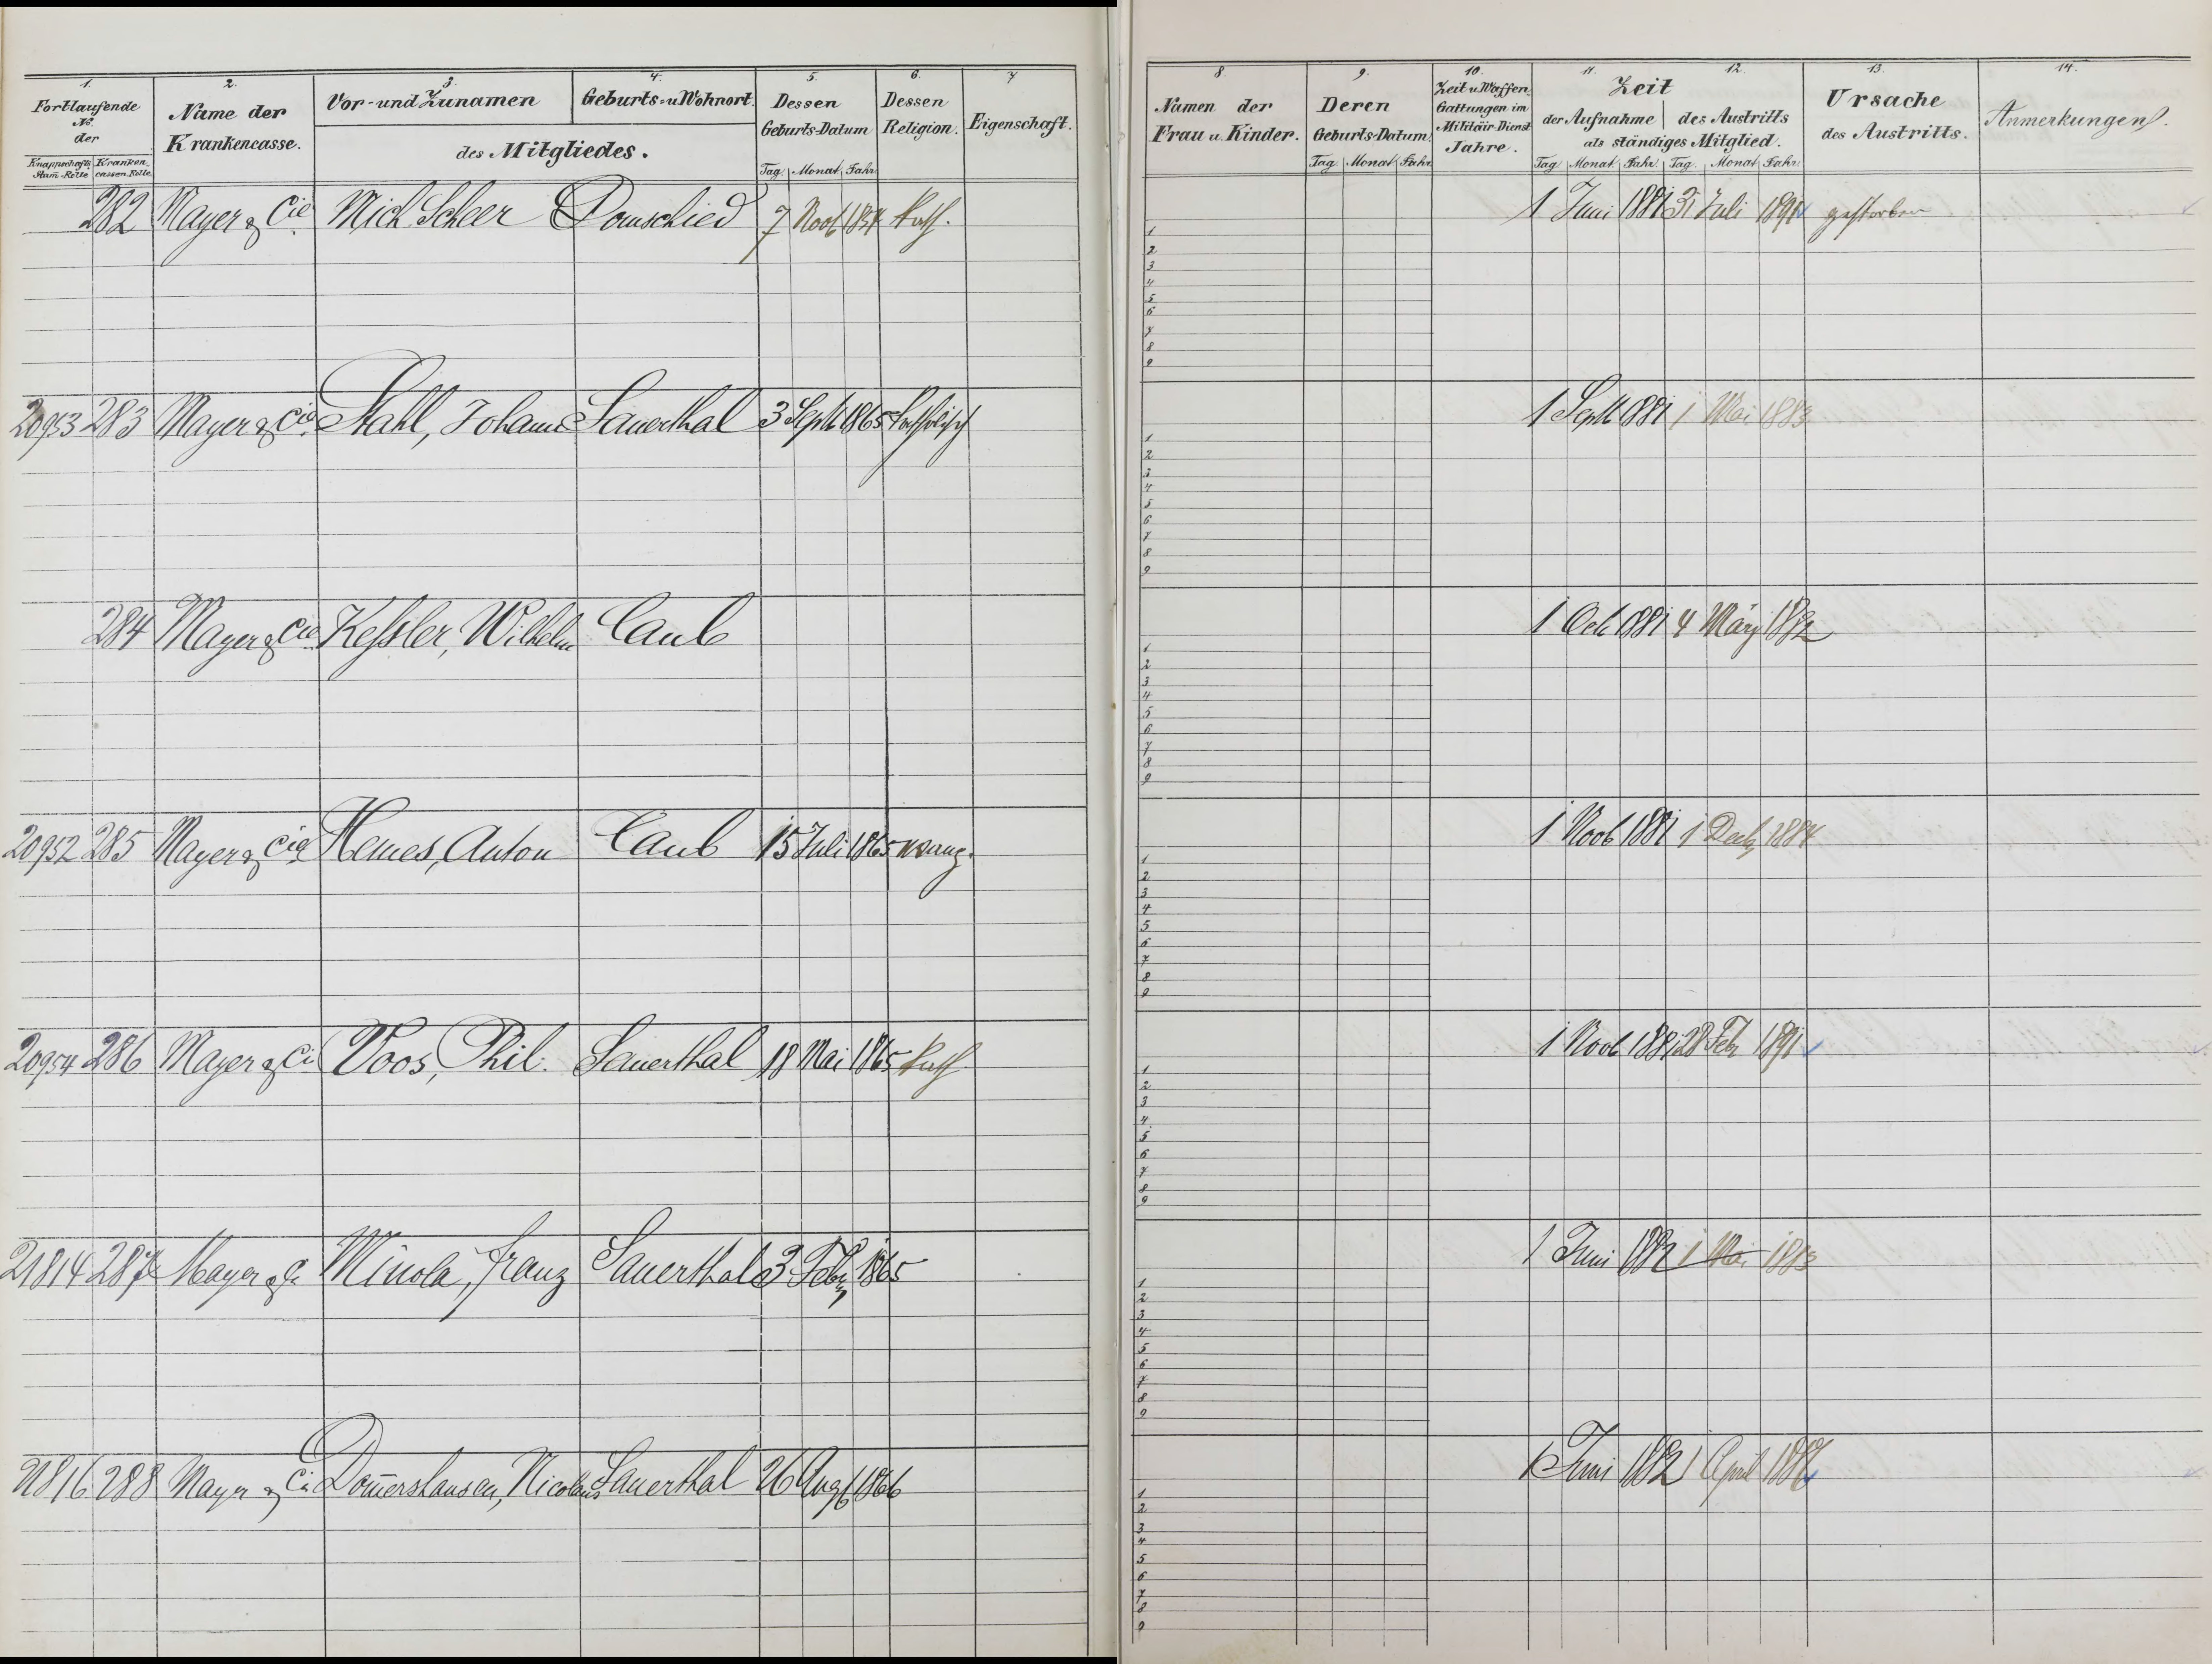 1. 2. 3. 4. 5. 6. 7
Fortlaufende No. der
Knappschafts Stam-Rolle Kranken cassen Rolle
Name der Krankencasse.
Vor- und Zunamen Geburts- u Wohnort.
des Mitgliedes.
Dessen Geburts-Datum
Tag. Monat Jahr
Dessen Religion.
Eigenschaft.
282 Mayer & Cie Mich Scheer Domschied 7 Novb kath.
20953 283 Mayer & Cie Stahl, Johann Sauerthal 3 Septb 1865 katholisch
284 Mayer & Cie Keßler, Wilhelm Caub
20952 285 Mayer & Cie Hemes, Anton Caub 15 Juli 1865 evang.
20954 286 Mayer & Ci Voos, Phil. Sauerthal 18 Mai 1865 kath
21814 287 Mayer & C Minola, Franz Sauerthal 3 Febr 1865
21816 288 Mayer & Ci Dom̄ershausen, Nicolaus Sauerthal 26 Augs 1866
8. 9. 10. 11. 12. 13. 14.
Namen der Frau u. Kinder.
Deren Geburts-Datum
Tag. Monat Jahr
Zeit u. Waffen Gattungen im Militäir-Dienst Jahre.
Zeit
der Aufnahme des Austritts
als ständiges Mitglied.
Tag Monat Jahr Tag. Monat Jahr
Ursache des Austritts.
Anmerkungen.
1 Juni 1881 31 Juli 1891 gestorben
1
2
3
4
5
6
7
8
9
1 Septb 1881 1 Mai 1883
1
2
3
4
5
6
7
8
9
1 Oct 1881 4 März 1882
1
2
3
4
5
6
7
8
9
1 Novb 1881 1 Decb 1884
1
2
3
4
5
6
7
8
9
1 Novb 1881 28 Feb 1891
1
2
3
4
5
6
7
8
9
1 Juni 1882 1 Mai 1883
1
2
3
4
5
6
7
8
9
1 Juni 1882 1 April
1
2
3
4
5
6
7
8
9